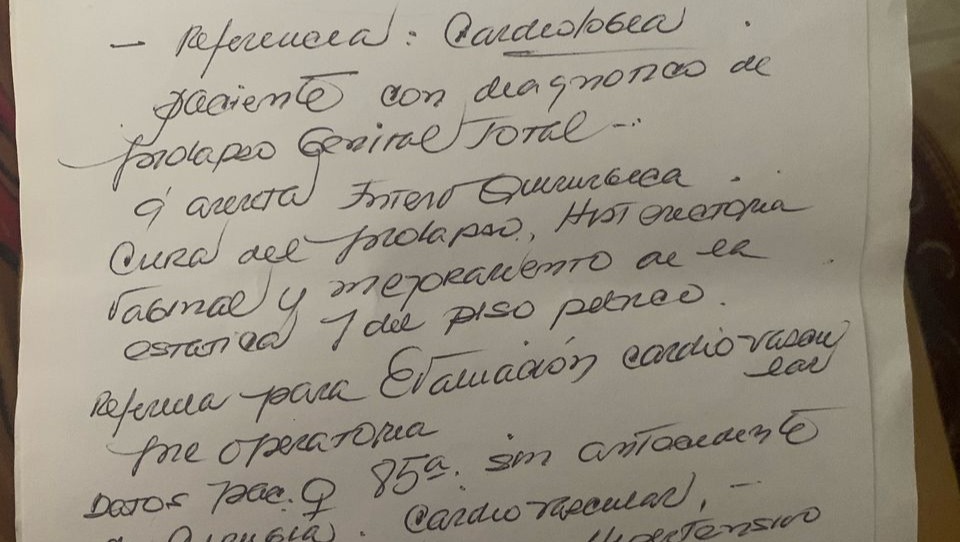 - Referencia: Cardiología.
paciente con diagnostico de
prolapso Genital Total -.
q' amerita Interv Quirurgica.
Cura del prolapso, Histerectomia
Vaginal y mejoramiento de la
estatica / del piso pelvico.
Referida para Evaluación cardiovascu
lar
pre operatoria
DATOS pac. ♀ 85a. sin antecedente
Cardiovascular, -
Hipertensivo